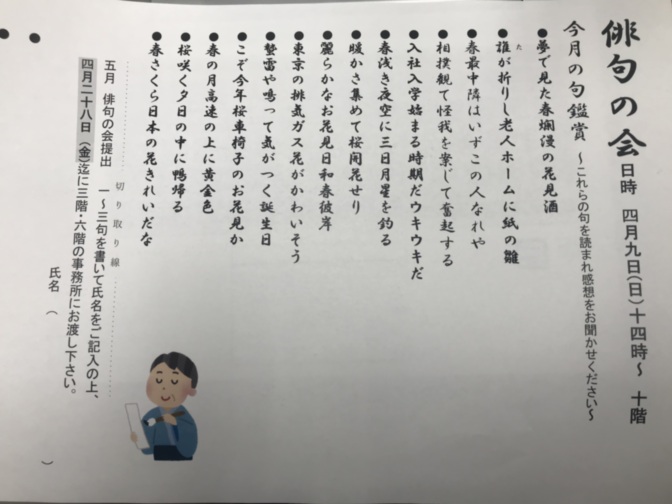 俳句の会 日時 四月九日(日)十四時～ 十階
今月の句鑑賞 ～これらの句を読まれ感想をお聞かせください～
●夢で見た春爛漫の花見酒
●誰が折りし老人ホームに紙の雛
た
●春最中隣はいずこの人なれや
●相撲観て怪我を案じて奮起する
●入社入学始まる時期だウキウキだ
●春浅き夜空に三日月星を釣る
●暖かさ集めて桜開花せり
●麗らかなお花見日和春彼岸
●東京の排気ガス花がかわいそう
●蟄雷や鳴って気がつく誕生日
●こぞ今年桜車椅子のお花見か
●春の月高速の上に黄金色
●桜咲く夕日の中に鴨帰る
●春さくら日本の花きれいだな
切り取り線
五月 俳句の会提出 一～三句を書いて氏名をご記入の上、
四月二十八日(金)迄に三階・六階の事務所にお渡し下さい。
氏名( )